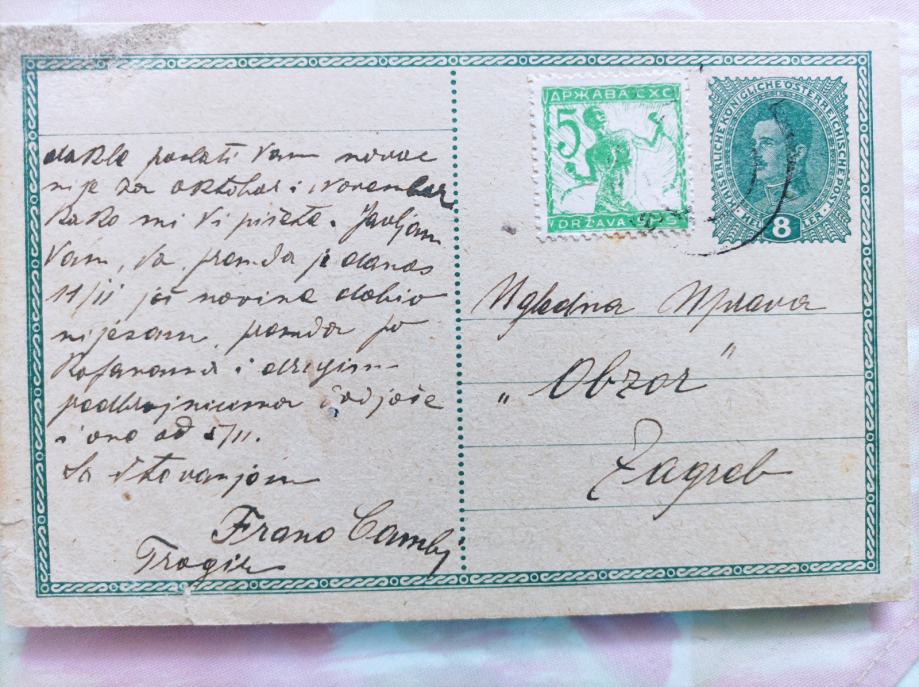 dakle poslati Vam novac
nije za oktobar i Novembar
kako mi Vi pišete. Javljam
Vam, da, premda je danas
11/II još novine dobio
nijesam, premda po
i drugim
i one od 5/II.
Sa štovanjem
Frano Camby
Trogir
ДРЖАВА СХС
5
DRŽAVA SHS
KAISERLICHE KÖNIGLICHE ÖSTERREICHISCHE POST
8
HELLER
Ugledna Uprava
„Obzor"
Zagreb